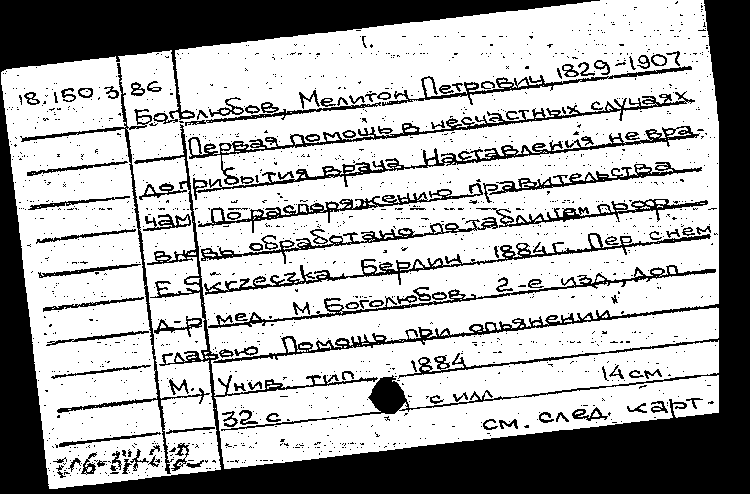 18.150.3.86.
Боголюбов, Мелитон Петрович, 1829-1907
Первая помощь в несчастных случаях
до прибытия врача. Наставления не вра-
чам. По распоряжению правительства
вновь обработано по таблицам проф.
E. Skrzeczka. Берлин. 1884 г. Пер. с нем
д-р мед. М. Боголюбов. 2-е изд., доп
главою „Помощь при опьянении".
М., Унив. тип. 1884
32 с. с илл 14 см.
см. след. карт.